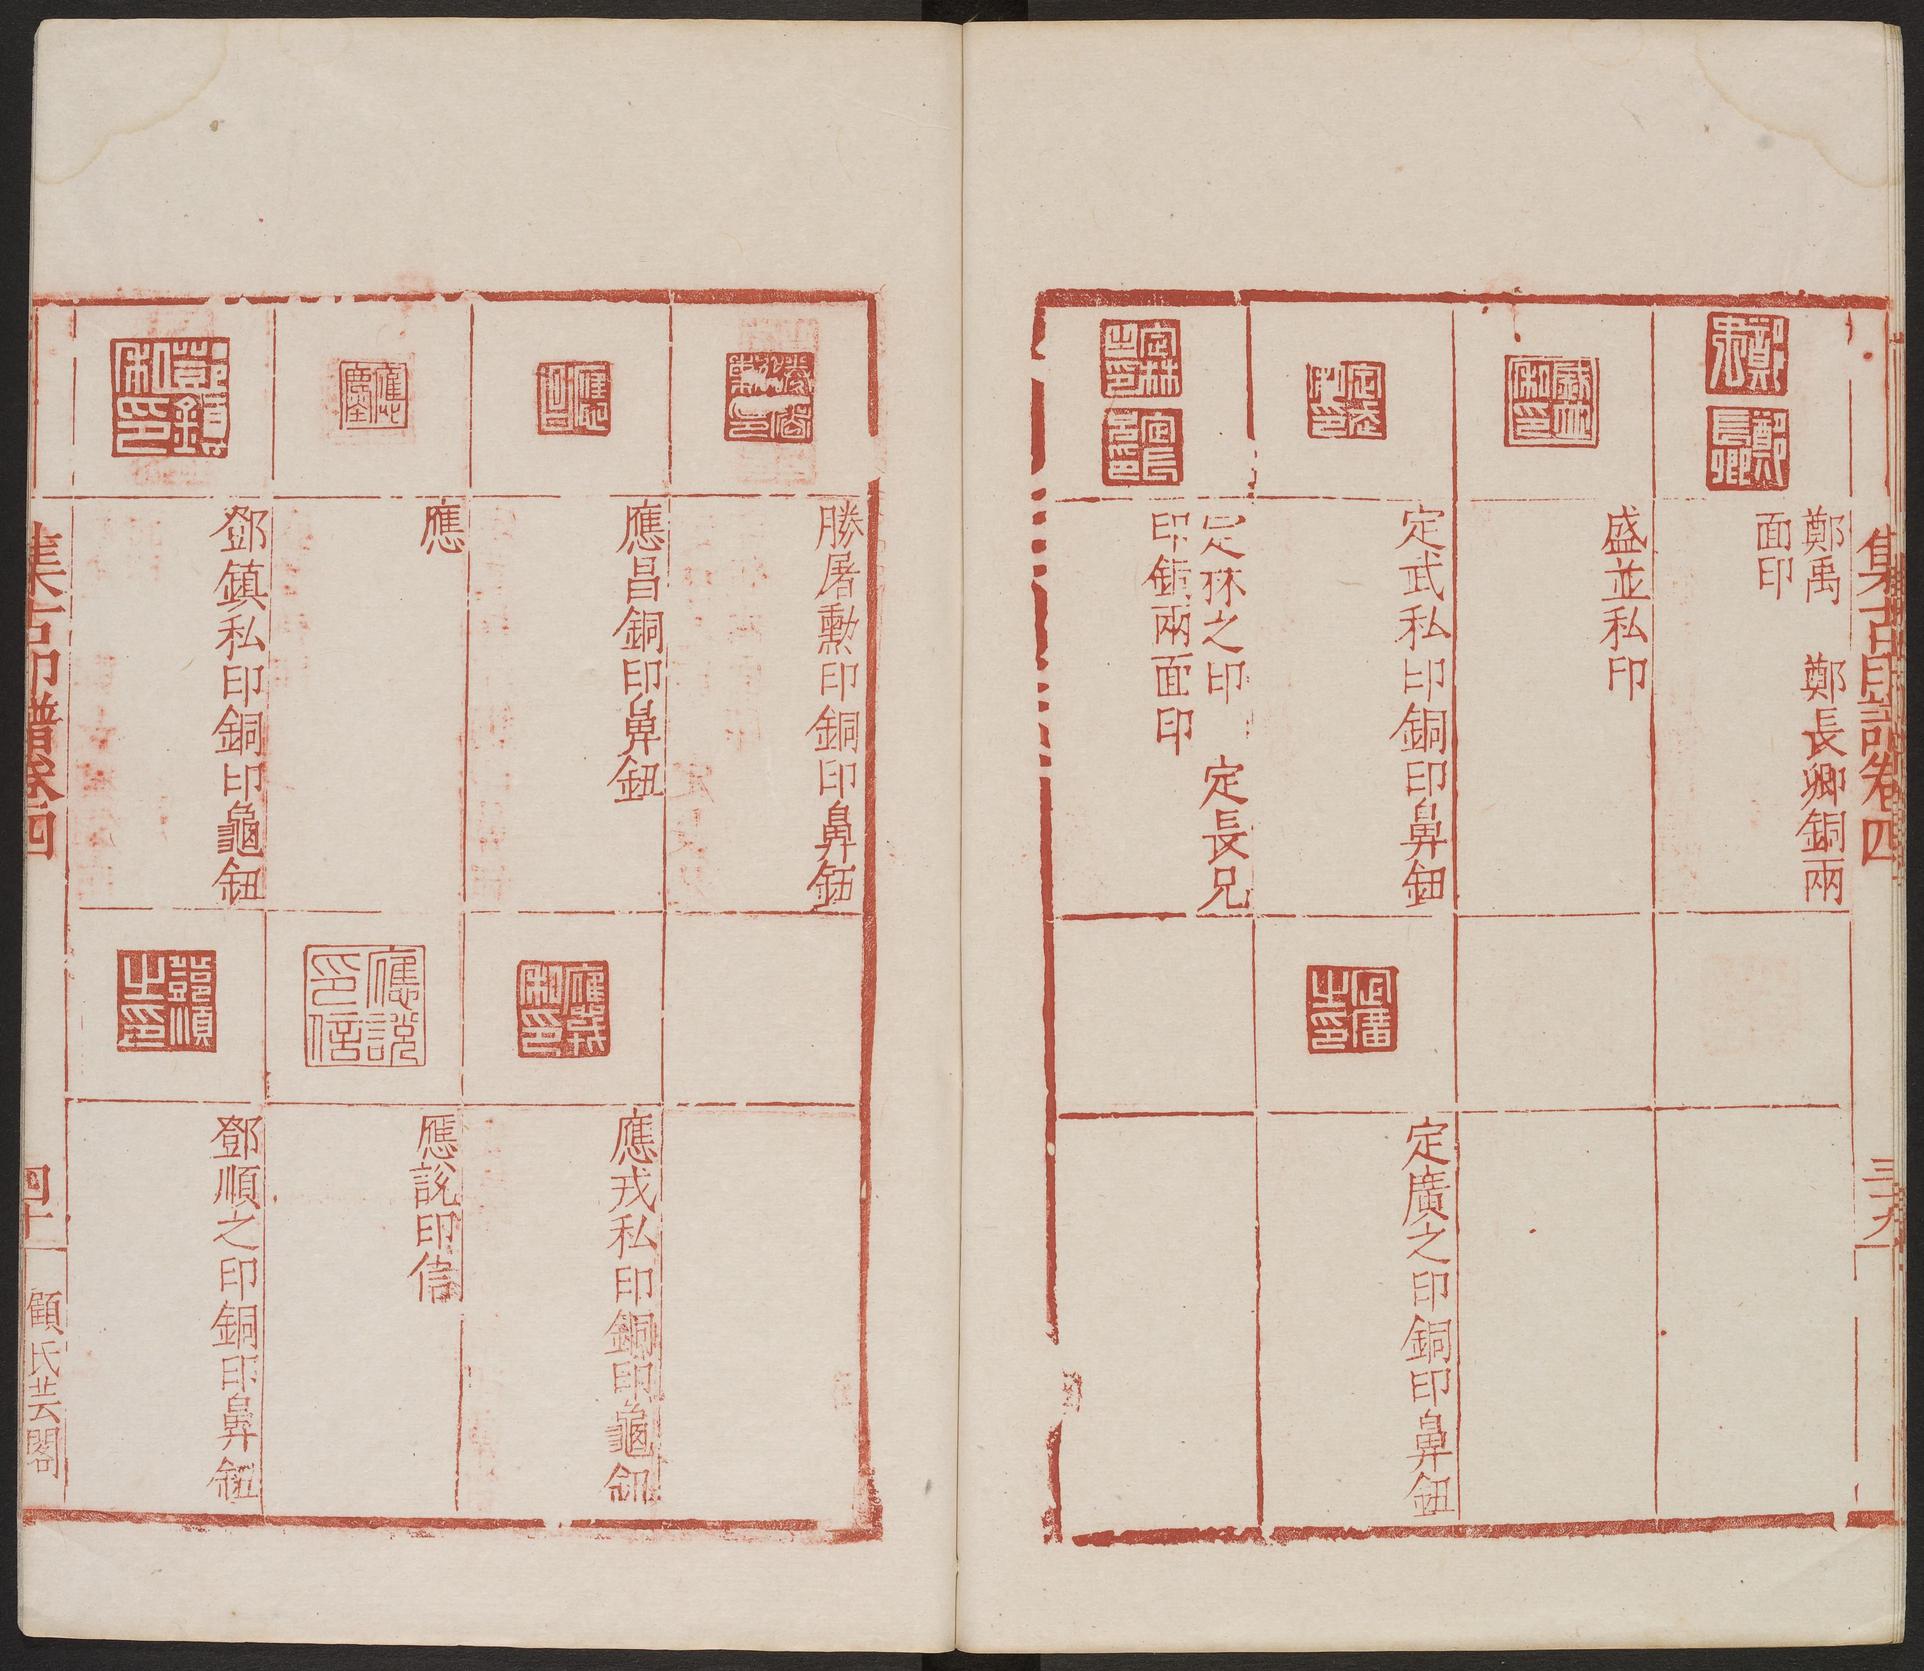 集古印譜卷四
三十九
鄭禹 鄭長卿銅兩
面印
盛並私印
定武私印銅印鼻鈕
定廣之印銅印鼻鈕
定林之印 定長兄
印銅兩面印
勝屠勳印銅印鼻鈕
應昌銅印鼻鈕
應戎私印銅印龜鈕
應
應說印信
鄧鎮私印銅印龜鈕
鄧順之印銅印鼻鈕
集古印譜卷四
四十
顧氏芸閣